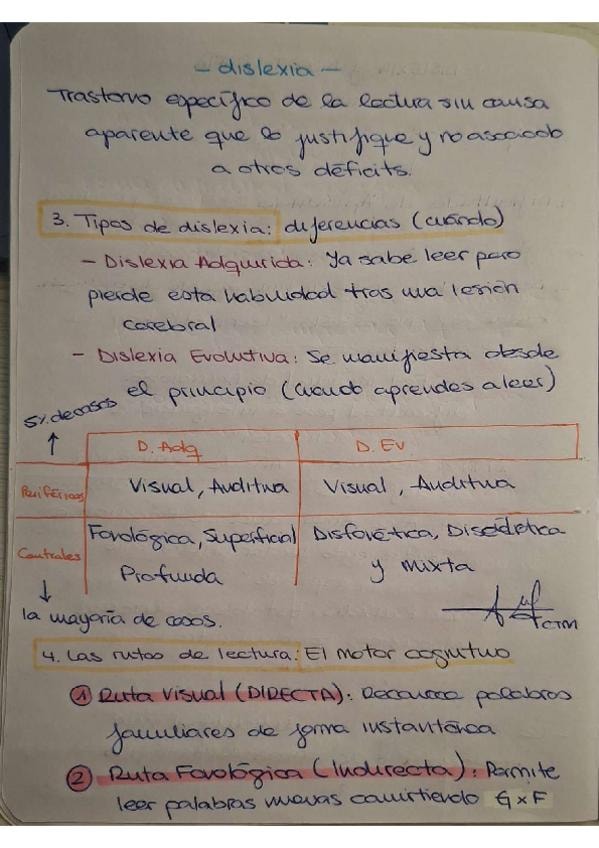 - dislexia -
Trastorno específico de la lectura sin causa
aparente que lo justifique y no asociado
a otros déficits.
3. Tipos de dislexia: diferencias (cuándo)
- Dislexia Adquirida: Ya sabe leer pero
pierde esta habilidad tras una lesión
cerebral
- Dislexia Evolutiva: Se manifiesta desde
el principio (cuando aprendes a leer)
5% de casos
D. Adq D. EV
Periféricas Visual, Auditiva Visual, Auditiva
Centrales Fonológica, Superficial Disfonética, Diseidética
Profunda y mixta
la mayoría de casos.
4. Las rutas de lectura: El motor cognitivo
1 Ruta Visual (DIRECTA): Reconoce palabras
familiares de forma instantánea
2 Ruta Fonológica (Indirecta): Permite
leer palabras nuevas convirtiendo G x F